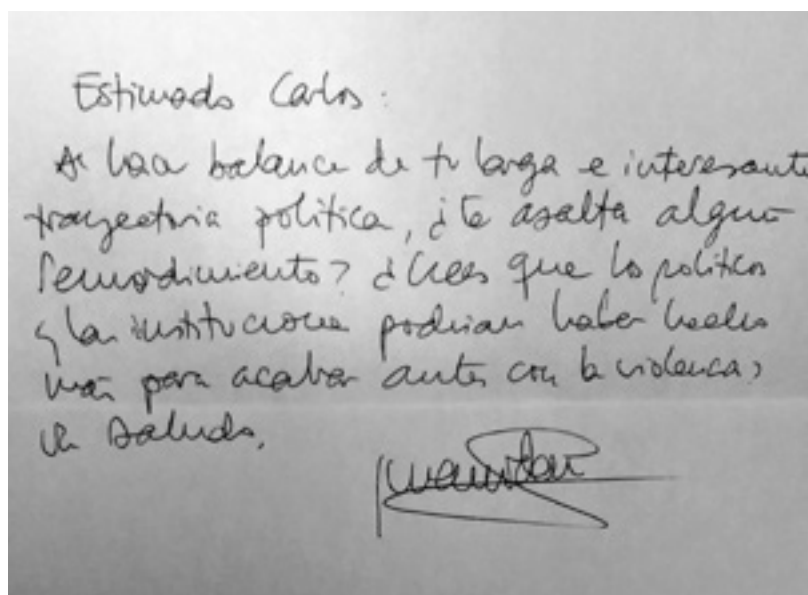 Estimado Carlos:
Al hacer balance de tu larga e interesante
trayectoria política, ¿te asalta algún
remordimiento? ¿Crees que los políticos
y las instituciones podrían haber hecho
más para acabar antes con la violencia?
Un saludo,